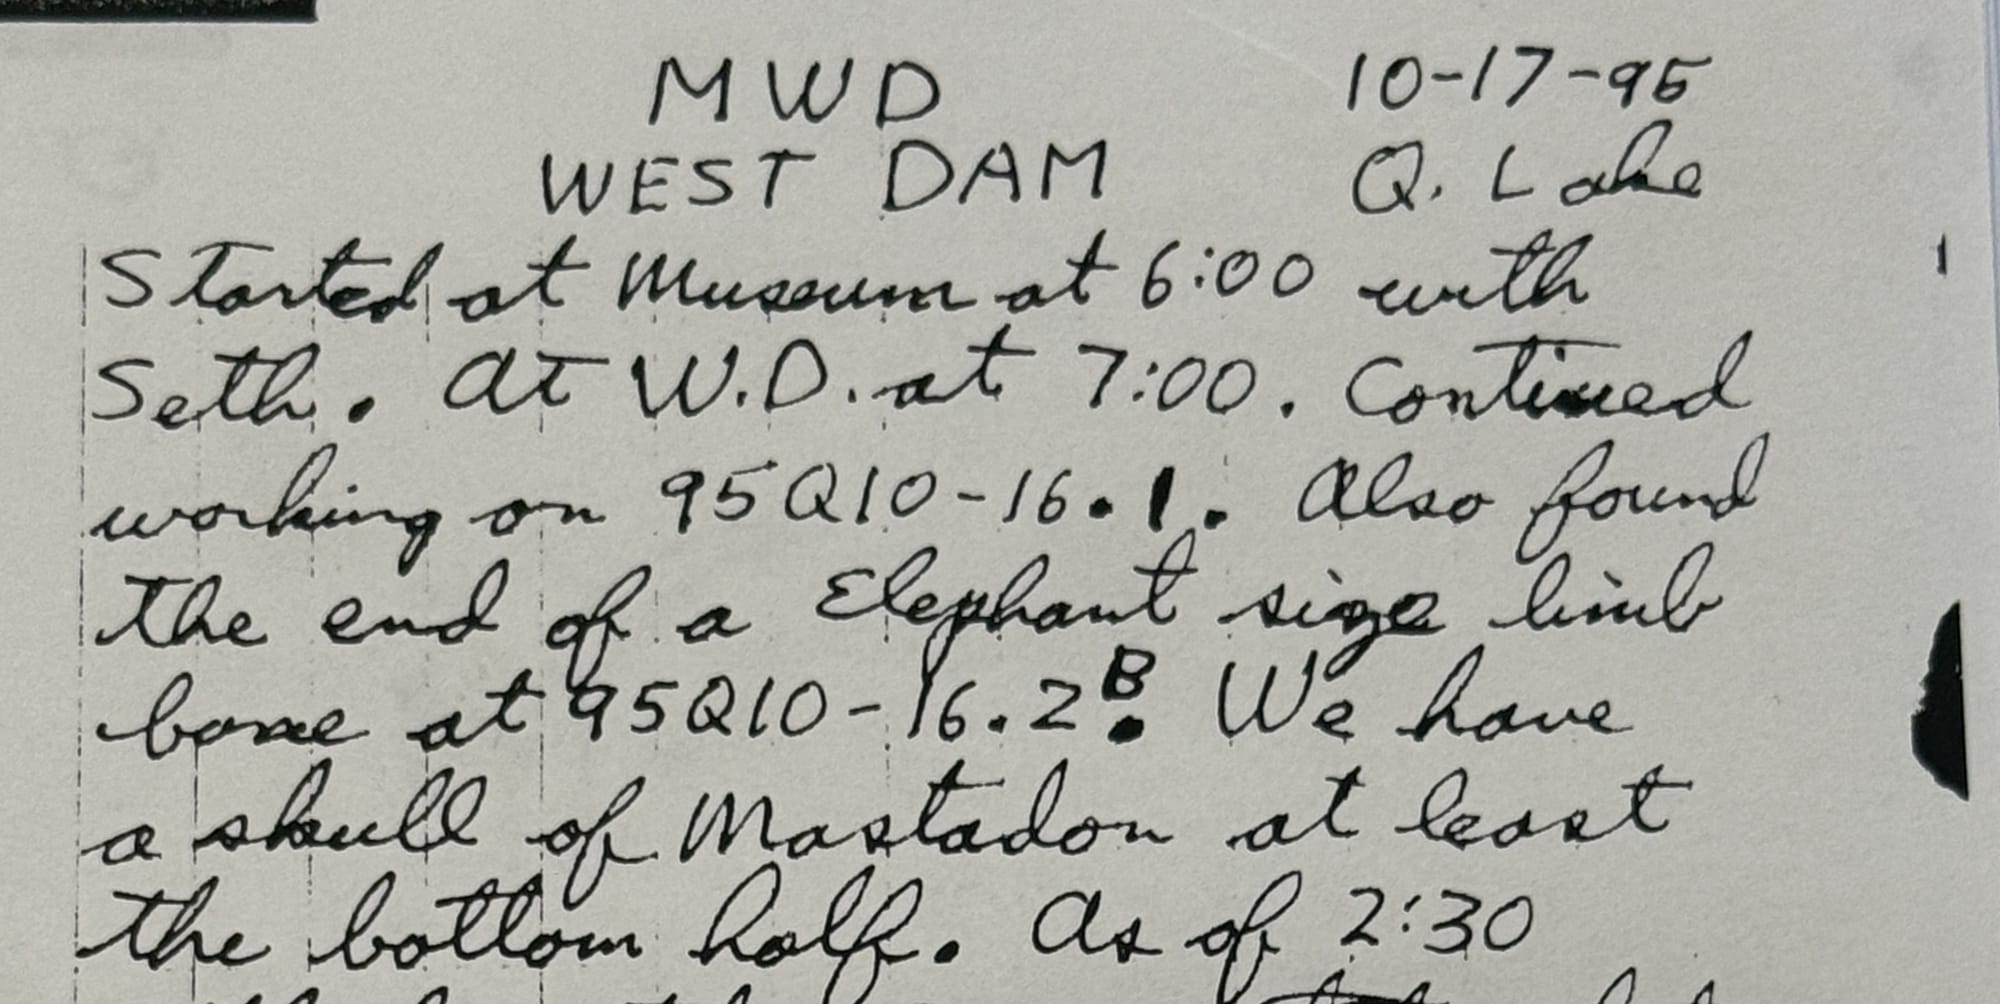 MWD 10-17-95
WEST DAM Q. Lake
Started at Museum at 6:00 with
Seth. At W.D. at 7:00. Contiued
working on 95Q10-16.1. Also found
the end of a Elephant size limb
bone at 95Q10-16.2B. We have
a skull of Mastadon at least
the bottom half. As of 2:30